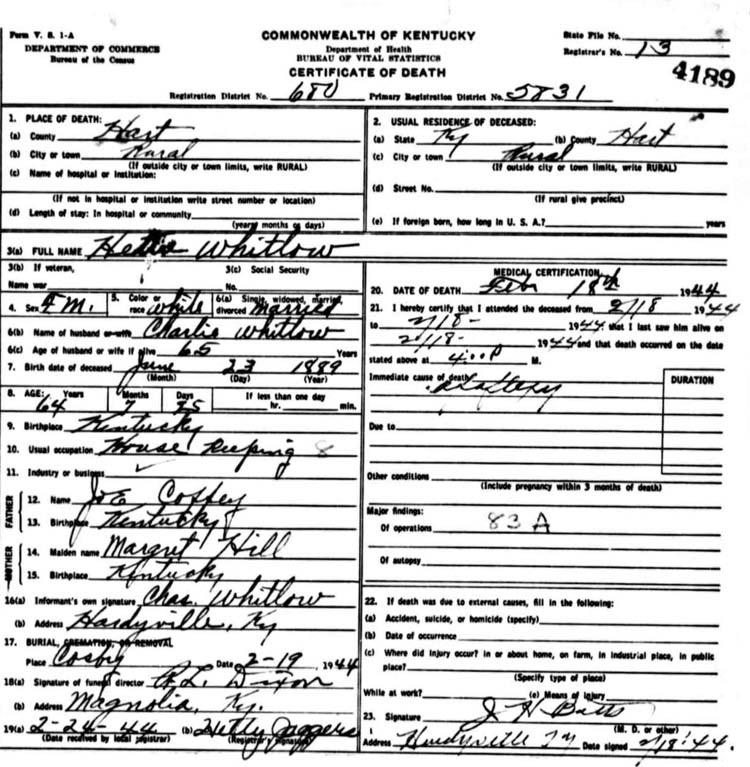 Form V. S. 1-A
DEPARTMENT OF COMMERCE
Bureau of the Census
COMMONWEALTH OF KENTUCKY
Department of Health
BUREAU OF VITAL STATISTICS
CERTIFICATE OF DEATH
State File No.
Registrar's No. 13
4189
Registration District No. 680 Primary Registration District No. 5831
1. PLACE OF DEATH:
(a) County Hart
(b) City or town Rural
(If outside city or town limits, write RURAL)
(c) Name of hospital or institution:
(If not in hospital or institution write street number or location)
(d) Length of stay: In hospital or community
(years months or days)
2. USUAL RESIDENCE OF DECEASED:
(a) State Ky (b) County Hart
(c) City or town Rural
(If outside city or town limits, write RURAL)
(d) Street No.
(If rural give precinct)
(e) If foreign born, how long in U. S. A.? years
3(a) FULL NAME Hettie Whitlow
3(b) If veteran, 3(c) Social Security
Name war No.
4. Sex F M. 5. Color or race White 6(a) Single, widowed, married, divorced Married
6(b) Name of husband or wife Charlie Whitlow
6(c) Age of husband or wife if alive 65 Years
7. Birth date of deceased June 23 1889
(Month) (Day) (Year)
8. AGE: Years Months Days If less than one day
64 7 25 hr. min.
9. Birthplace Kentucky
10. Usual occupation House Keeping 8
11. Industry or business
FATHER
12. Name Joe Coffey
13. Birthplace Kentucky
MOTHER
14. Maiden name Margret Hill
15. Birthplace Kentucky
16(a) Informant's own signature Chas. Whitlow
(b) Address Hardyville, Ky
17. BURIAL, CREMATION, OR REMOVAL
Place Cosby Date 2-19, 1944
18(a) Signature of funeral director R. L. Dixon
(b) Address Magnolia, Ky.
19(a) 2-24-44 (b) Hetty Jaggers
(Date received by local registrar) (Registrar's signature)
MEDICAL CERTIFICATION
20. DATE OF DEATH Feb 18th 1944
21. I hereby certify that I attended the deceased from 2/18 1944
to 2/18- 1944 that I last saw him alive on
2/18- 1944 and that death occurred on the date
stated above at 4:00 P M.
Immediate cause of death
DURATION
Due to
Other conditions
(Include pregnancy within 3 months of death)
Major findings:
Of operations 83 A
Of autopsy
22. If death was due to external causes, fill in the following:
(a) Accident, suicide, or homicide (specify)
(b) Date of occurrence
(c) Where did injury occur? in or about home, on farm, in industrial place, in public
place?
(Specify type of place)
While at work? (e) Means of injury
23. Signature J H Batts
(M. D. or other)
Address Hardyville Ky Date signed 2/18'44.